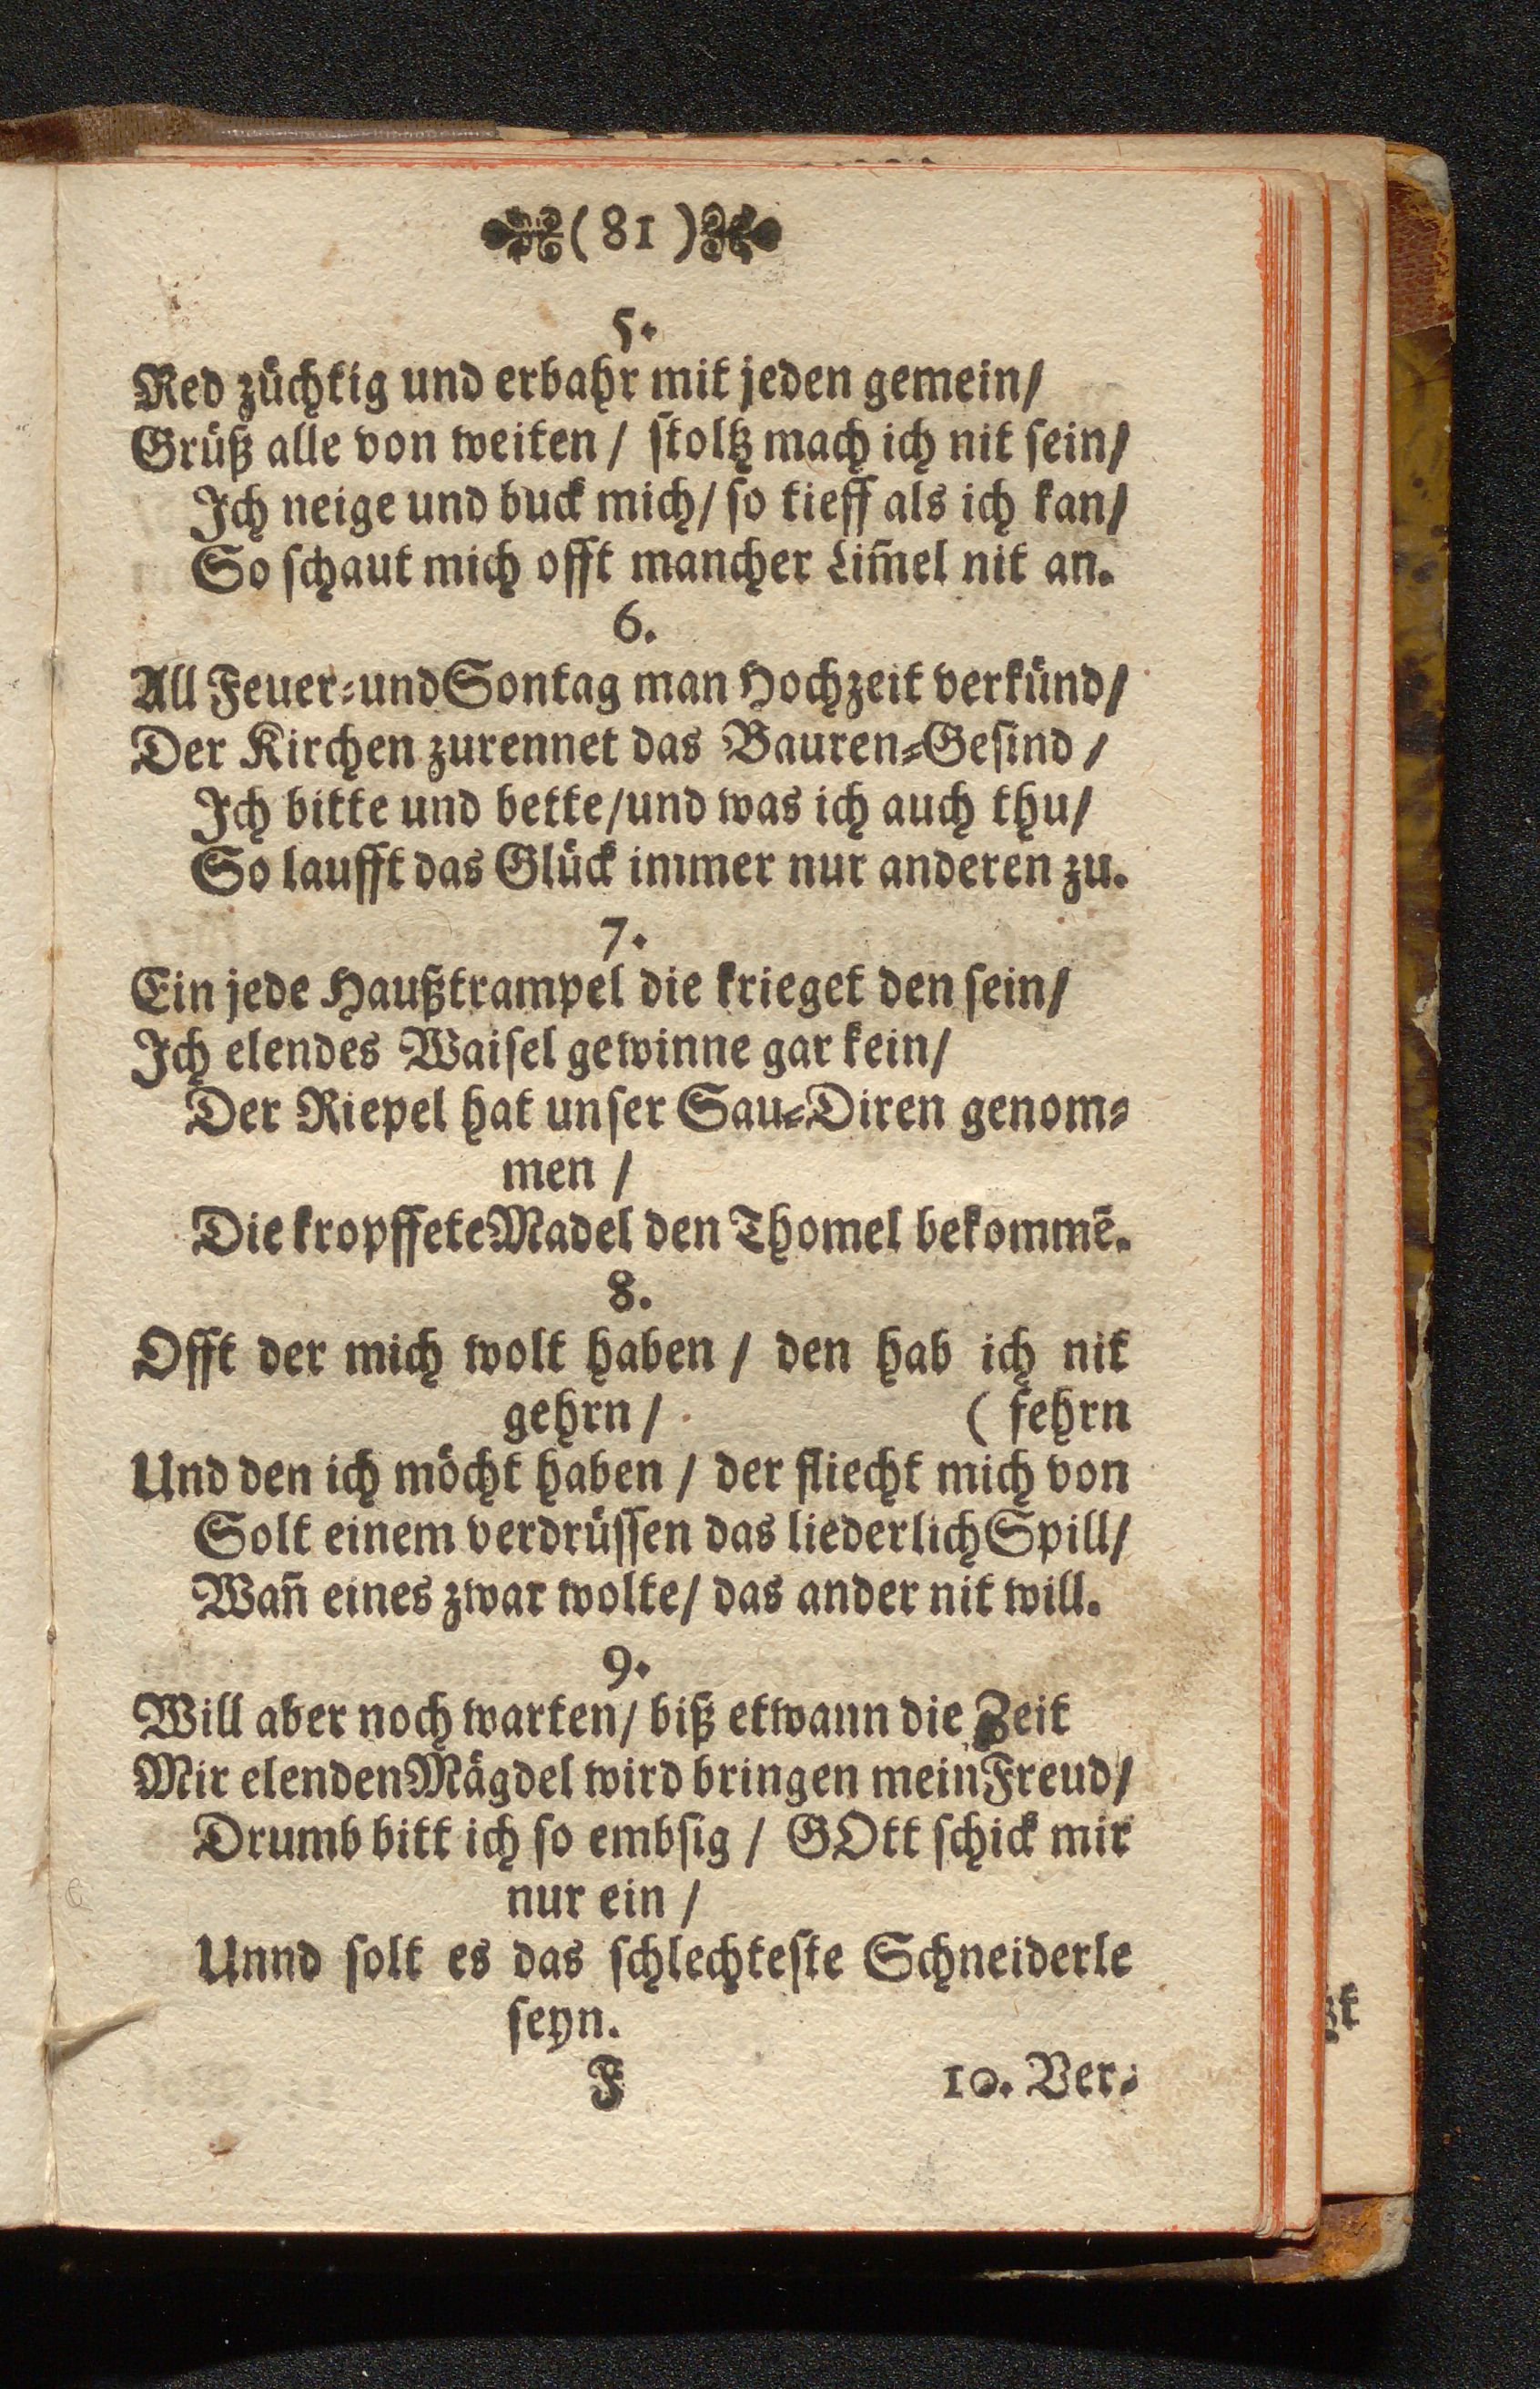 (81)
5.
Red züchtig und erbahr mit jeden gemein/
Grüß alle von weiten / stoltz mach ich nit sein/
Ich neige und buck mich/ so tieff als ich kan/
So schaut mich offt mancher Lim̄el nit an.
6.
All Feuer-und Sontag man Hochzeit verkünd/
Der Kirchen zurennet das Bauren-Gesind /
Ich bitte und bette/und was ich auch thu/
So laufft das Glück immer nur anderen zu.
7.
Ein jede Haußtrampel die krieget den sein/
Ich elendes Waisel gewinne gar kein/
Der Riepel hat unser Sau-Diren genom-
men /
Die kropffete Madel den Thomel bekommē.
8.
Offt der mich wolt haben / den hab ich nit
gehrn / ( fehrn
Und den ich möcht haben / der fliecht mich von
Solt einem verdrüssen das liederlich Spill/
Wañ eines zwar wolte/ das ander nit will.
9.
Will aber noch warten/ biß etwann die Zeit
Mir elenden Mägdel wird bringen mein Freud/
Drumb bitt ich so embsig / GOtt schick mir
nur ein /
Unnd solt es das schlechteste Schneiderle
seyn.
F 10. Ver-